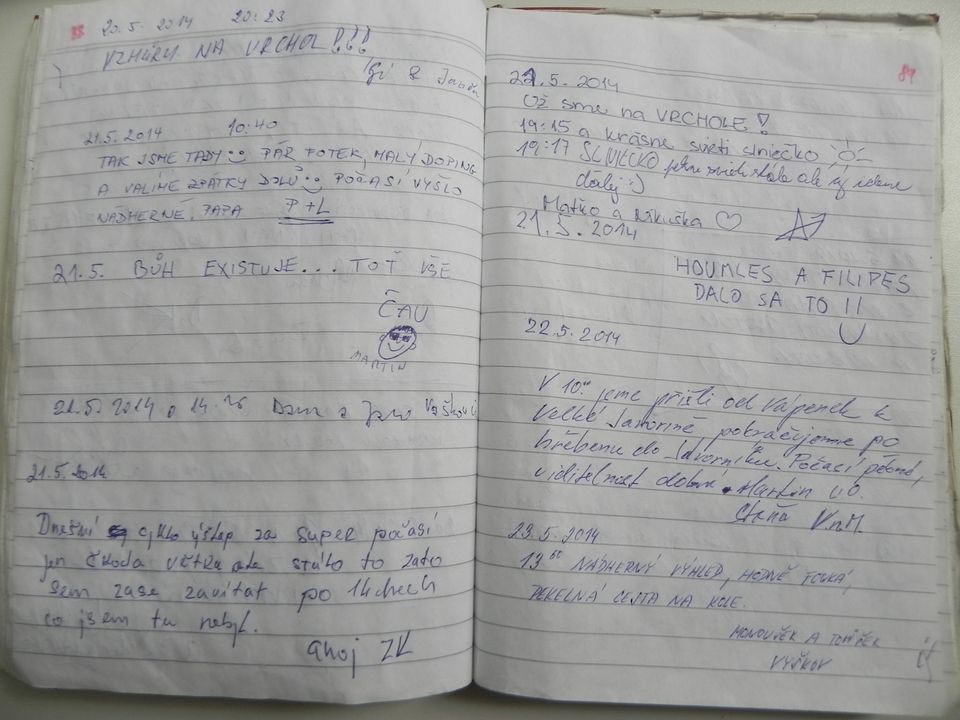 88 20.5. 2014 20:23
VZHŮRU NA VRCHOL !!!
21.5. 2014 10:40
TAK JSME TADY PÁR FOTEK, MALÝ DOPING
A VALÍME ZPÁTKY DOLŮ POČASÍ VYŠLO
NÁDHERNĚ, PAPA P+L
21.5. BŮH EXISTUJE... TOŤ VŠE
ČAU
MARTIN
21.5. 2014 14.26 a Jano
21.5. 2014
Dnešní cyklo výstup za super počasí
jen škoda větru ale stálo to zato
sem zase zavítat po 14 dnech
co jsem tu nebyl.
ahoj ZK
89
21.5. 2014
Už sme na VRCHOLE!
19:15 a krásne svieti slniečko
19:17 SLNIECKO ale už ideme
ďalej :)
Maťko a Nikuška
21.5. 2014
HOUMLES A FILIPES
DALO SA TO !!
22.5. 2014
V 10.00 jsme přišli od Vápenek k
Velké Javořině pokračujeme po
hřebenu do Javorníku. Počasí pěkné,
viditelnost dobrá. Martin U.O.
Staňa V.n.M.
23.5. 2014
13 NÁDHERNÝ VÝHLED, HODNĚ FOUKÁ,
PEKELNÁ CESTA NA KOLE.
MONOUŠEK A TOMÍŠEK
VYŠKOV